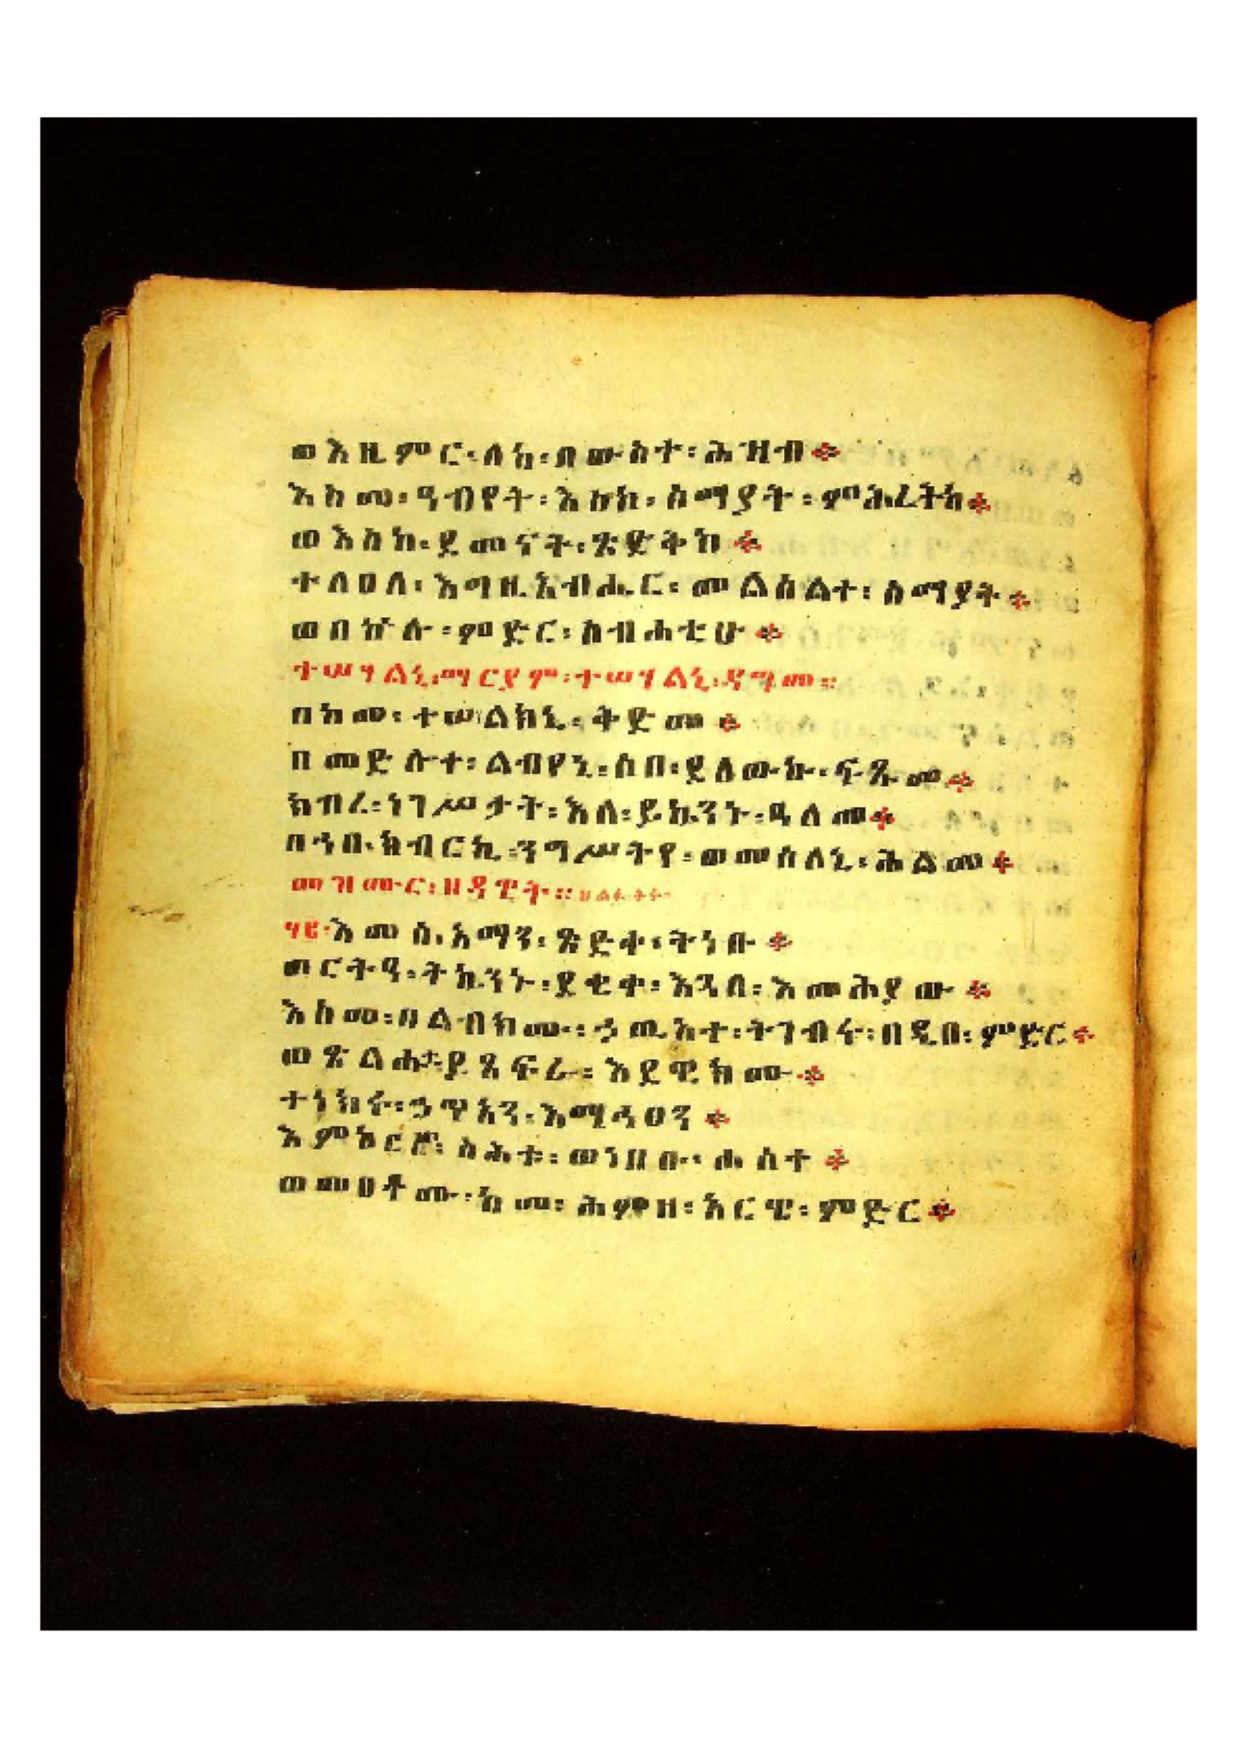 ወእዜምር፡ለከ፡በውስተ፡ሕዝብ።
እስመ፡ዓብየት፡እስከ፡ሰማያት፡ምሕረትከ።
ወእስከ፡ደመናት፡ጽድቅከ።
ተለዐለ፡እግዚአብሔር፡መልዕልተ፡ሰማያት።
ወበኵሉ፡ምድር፡ስብሐቲሁ።
ተሣሃልኒ፡ማርያም፡ተሣሃልኒ፡ዳግመ።
በከመ፡ተሣልክኒ፡ቅድመ።
በመድሎተ፡ልብየ፡ሶበ፡ደለውኩ፡ፍጹመ።
ክብረ፡ነገሥታት፡እለ፡ይኴንኑ፡ዓለመ።
በኀበ፡ክብርኪ፡ንግሥትየ፡ወመሰለኒ፡ሕልመ።
መዝሙር፡ዘዳዊት።
እመሰ፡አማን፡ጽድቀ፡ትነቡ።
ወርትዓ፡ትኴንኑ፡ደቂቀ፡እጓለ፡እመሕያው።
እስመ፡በልብክሙ፡ኃጢአተ፡ትገብሩ፡በዲበ፡ምድር።
ወጽልሑተ፡ይጸፍራ፡እደዊክሙ።
ተነክሩ፡ኃጥአን፡እማኅፀን።
እምከርሦሙ፡ስሕቱ፡ወነበቡ፡ሐሰተ።
ወመዐቶሙ፡ከመ፡ሕምዘ፡አርዌ፡ምድር።